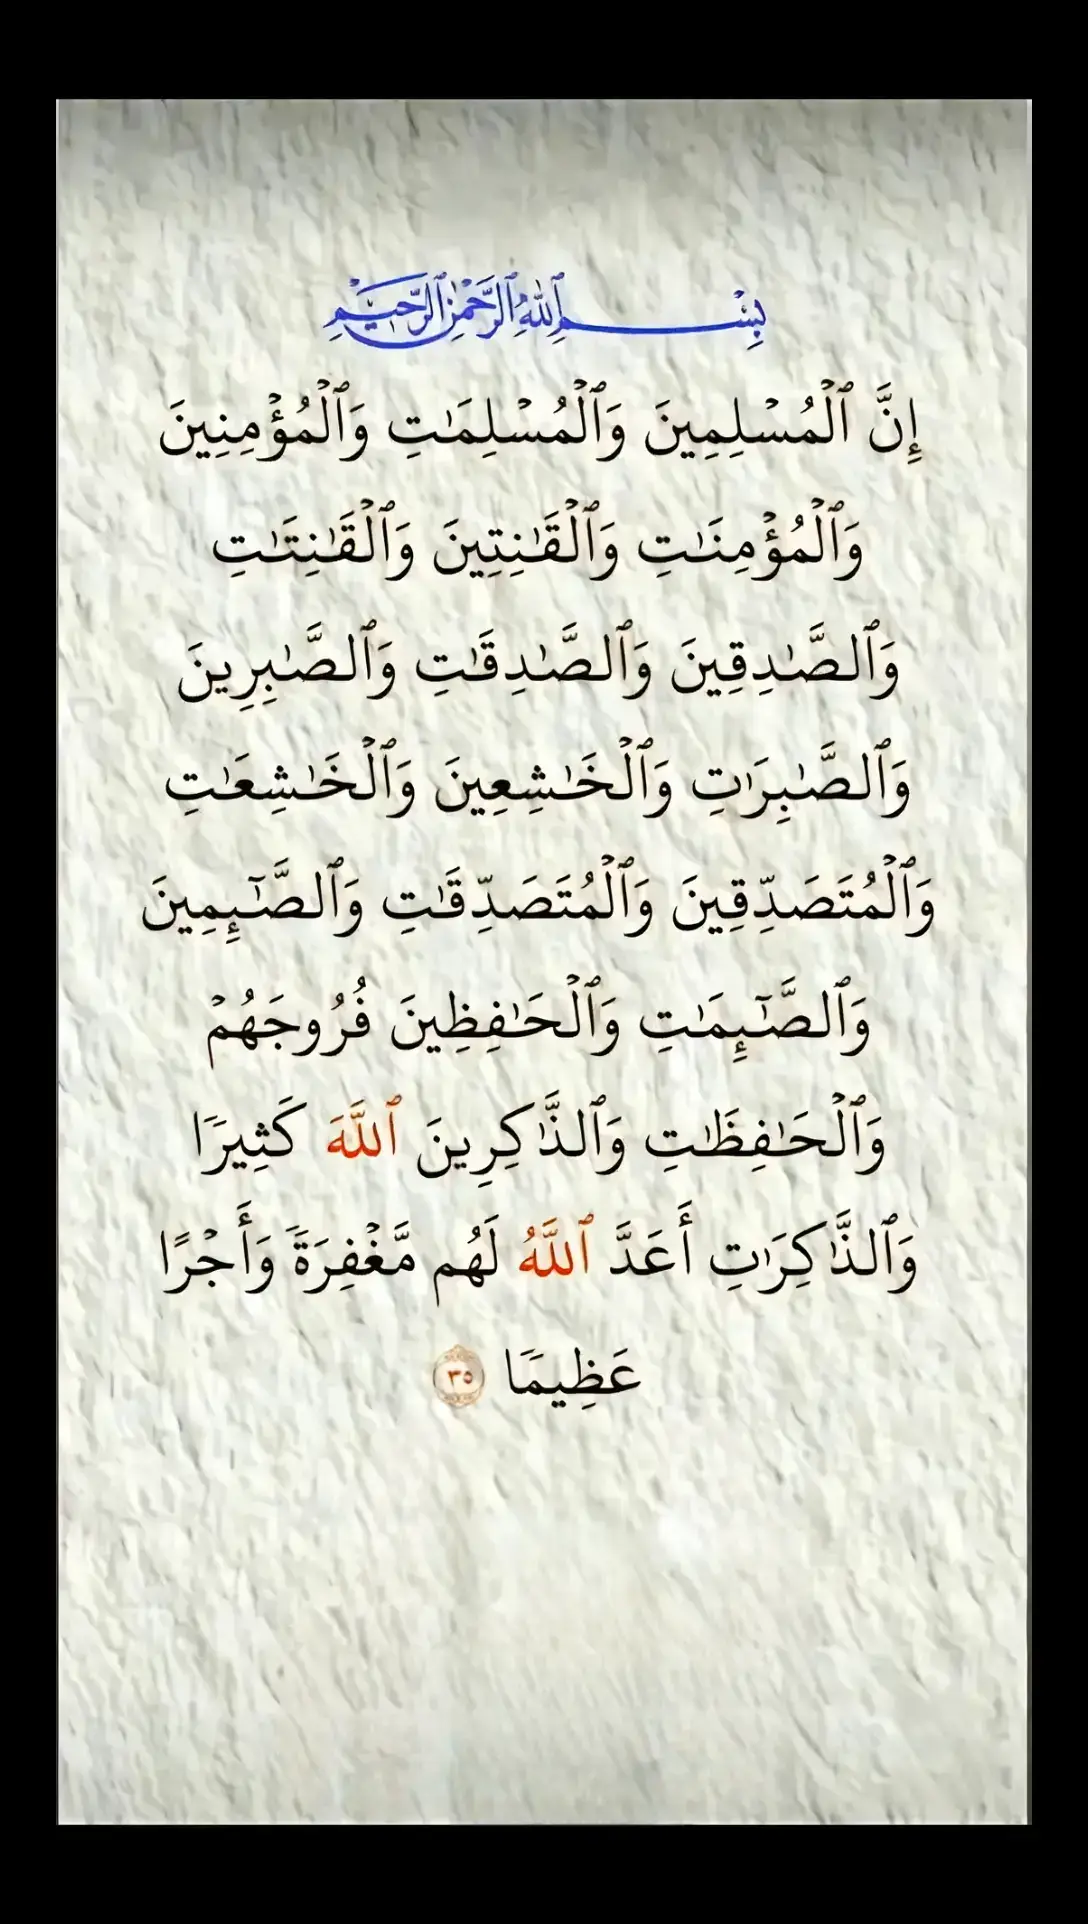 بِسْمِ ٱللَّهِ ٱلرَّحْمَٰنِ ٱلرَّحِيمِ
إِنَّ ٱلْمُسْلِمِينَ وَٱلْمُسْلِمَٰتِ وَٱلْمُؤْمِنِينَ
وَٱلْمُؤْمِنَٰتِ وَٱلْقَٰنِتِينَ وَٱلْقَٰنِتَٰتِ
وَٱلصَّٰدِقِينَ وَٱلصَّٰدِقَٰتِ وَٱلصَّٰبِرِينَ
وَٱلصَّٰبِرَٰتِ وَٱلْخَٰشِعِينَ وَٱلْخَٰشِعَٰتِ
وَٱلْمُتَصَدِّقِينَ وَٱلْمُتَصَدِّقَٰتِ وَٱلصَّٰٓئِمِينَ
وَٱلصَّٰٓئِمَٰتِ وَٱلْحَٰفِظِينَ فُرُوجَهُمْ
وَٱلْحَٰفِظَٰتِ وَٱلذَّٰكِرِينَ ٱللَّهَ كَثِيرًا
وَٱلذَّٰكِرَٰتِ أَعَدَّ ٱللَّهُ لَهُم مَّغْفِرَةً وَأَجْرًا
عَظِيمًا ٣٥